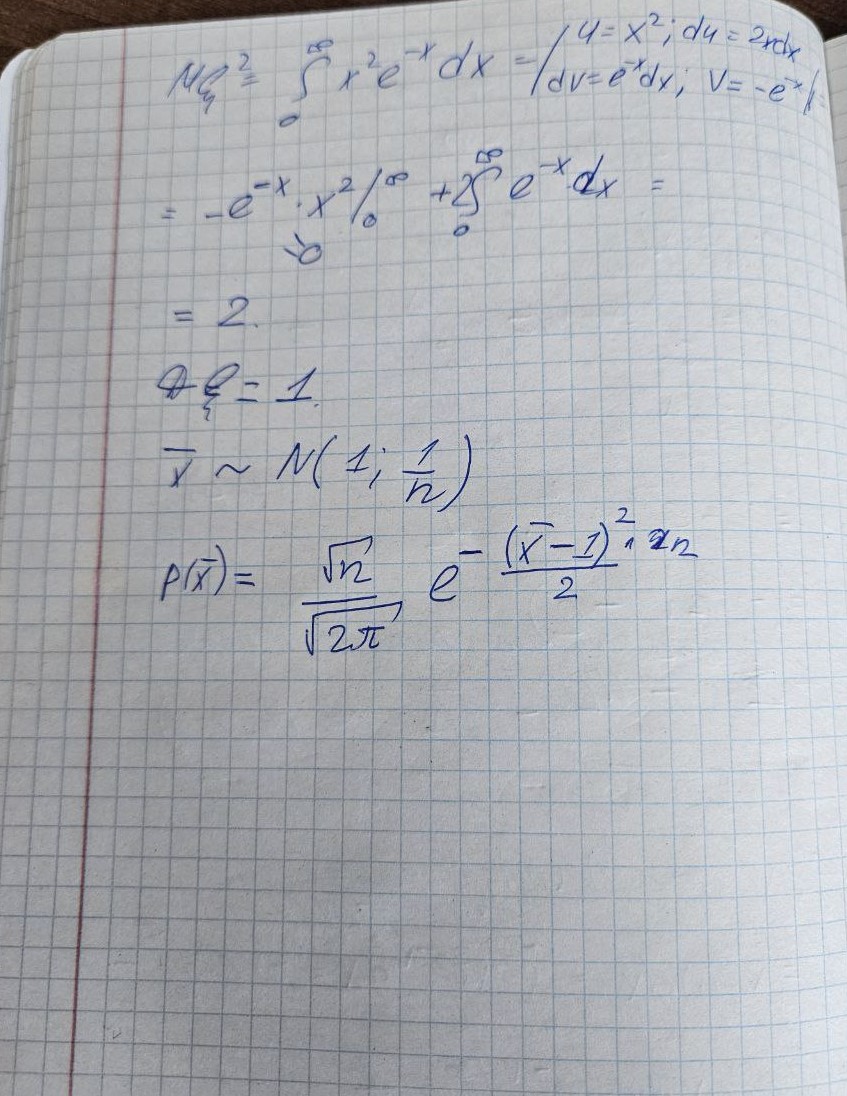 Mξ² = ∫₀^∞ x²e^{-x} dx = | u = x²; du = 2xdx
dv = e^{-x}dx; v = -e^{-x} | =
= -e^{-x} · x² |₀^∞ + 2∫₀^∞ e^{-x} dx =
→0
= 2.
Dξ = 1.
x̄ ~ N(1; 1/n)
p(x̄) = √n / √2π e^{- (x̄-1)² · n / 2}